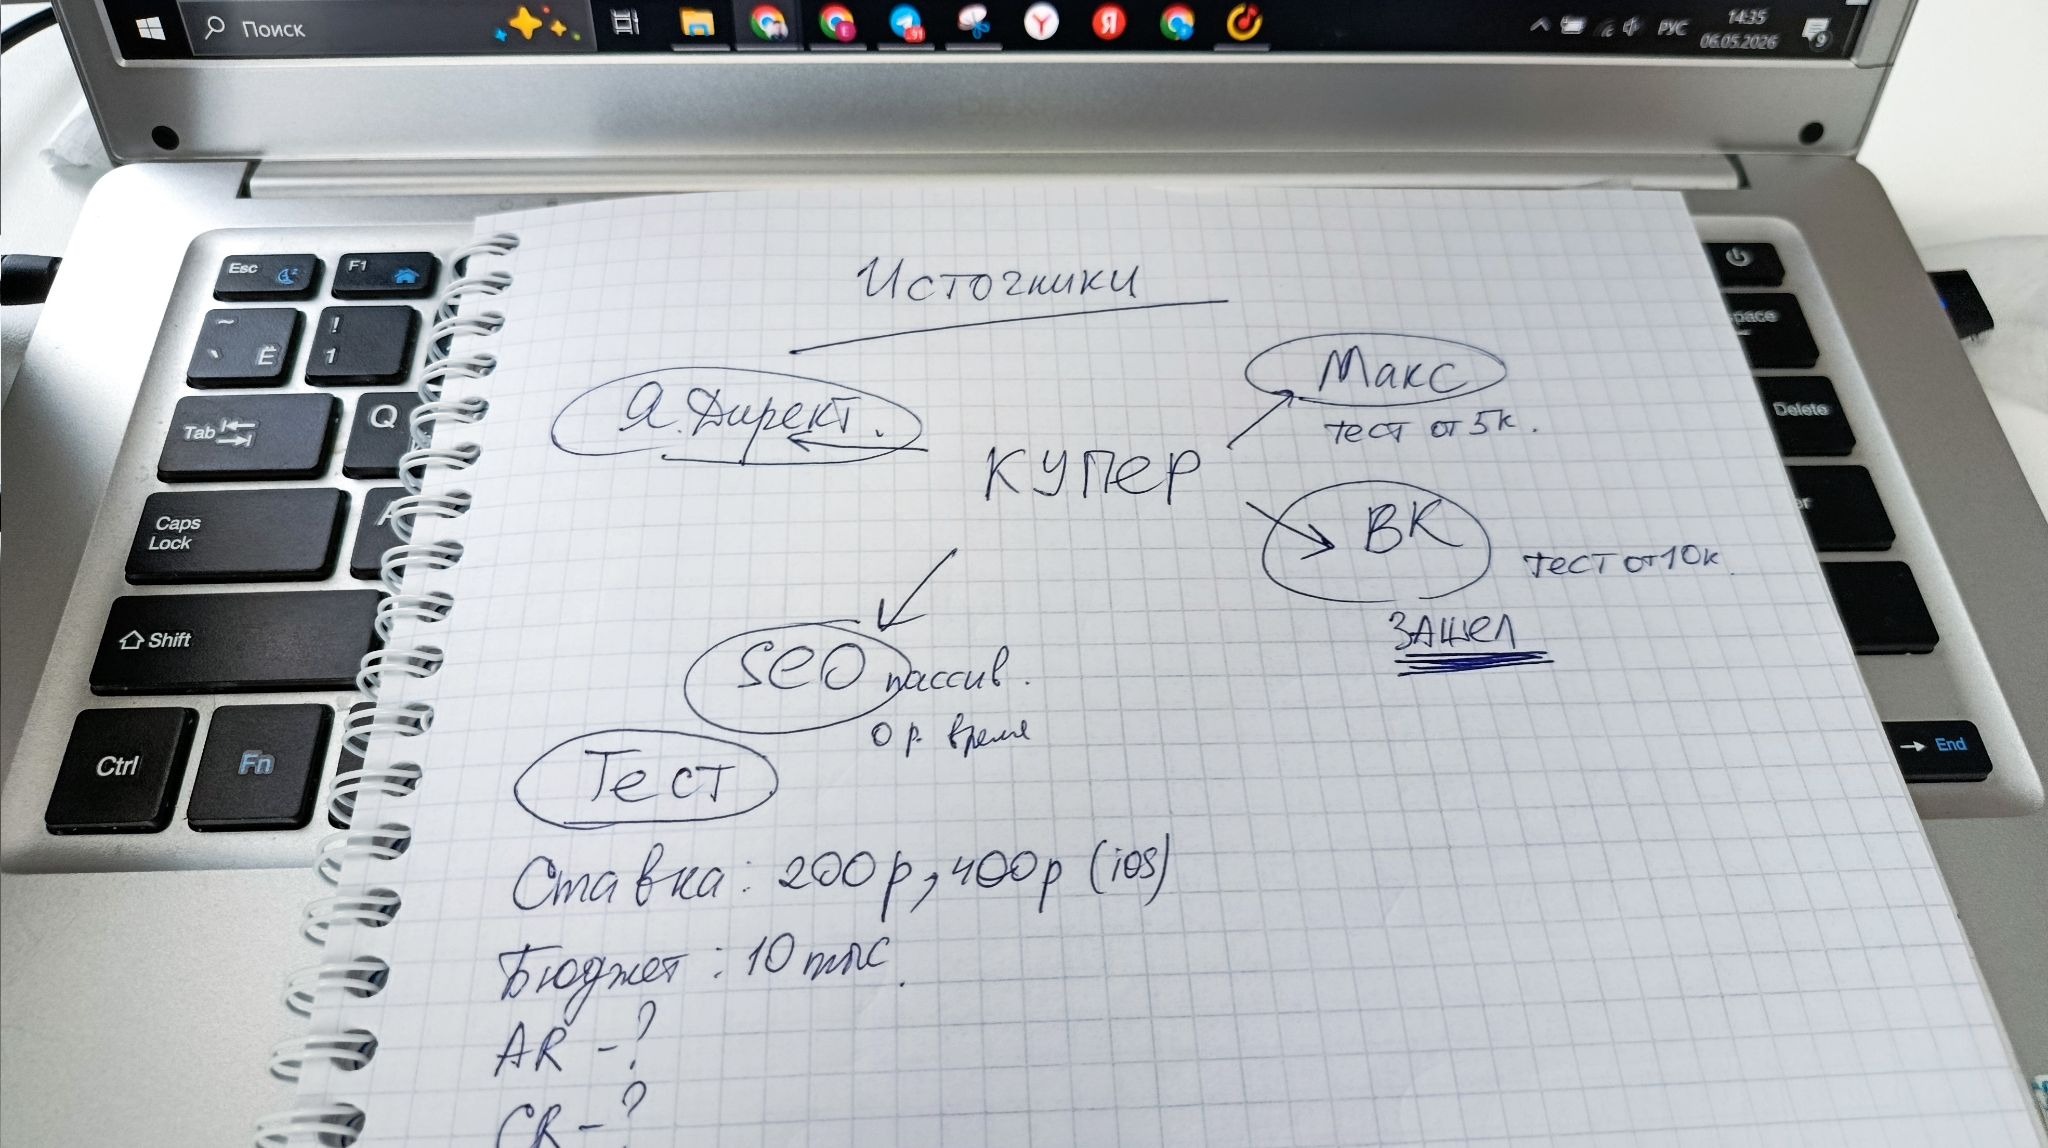 Поиск
РУС
14:35
06.05.2026
9
Esc
F1
~
` Ё
!
1
Tab
Q
Caps
Lock
A
Shift
Ctrl
Fn
Delete
End
Источники
Я.Директ.
Макс
тест от 5к.
КУПЕР
ВК
тест от 10к.
ЗАШЕЛ
SEO пассив.
0 р. время
Тест
Ставка: 200р, 400р (ios)
Бюджет: 10 тыс.
AR - ?
CR - ?